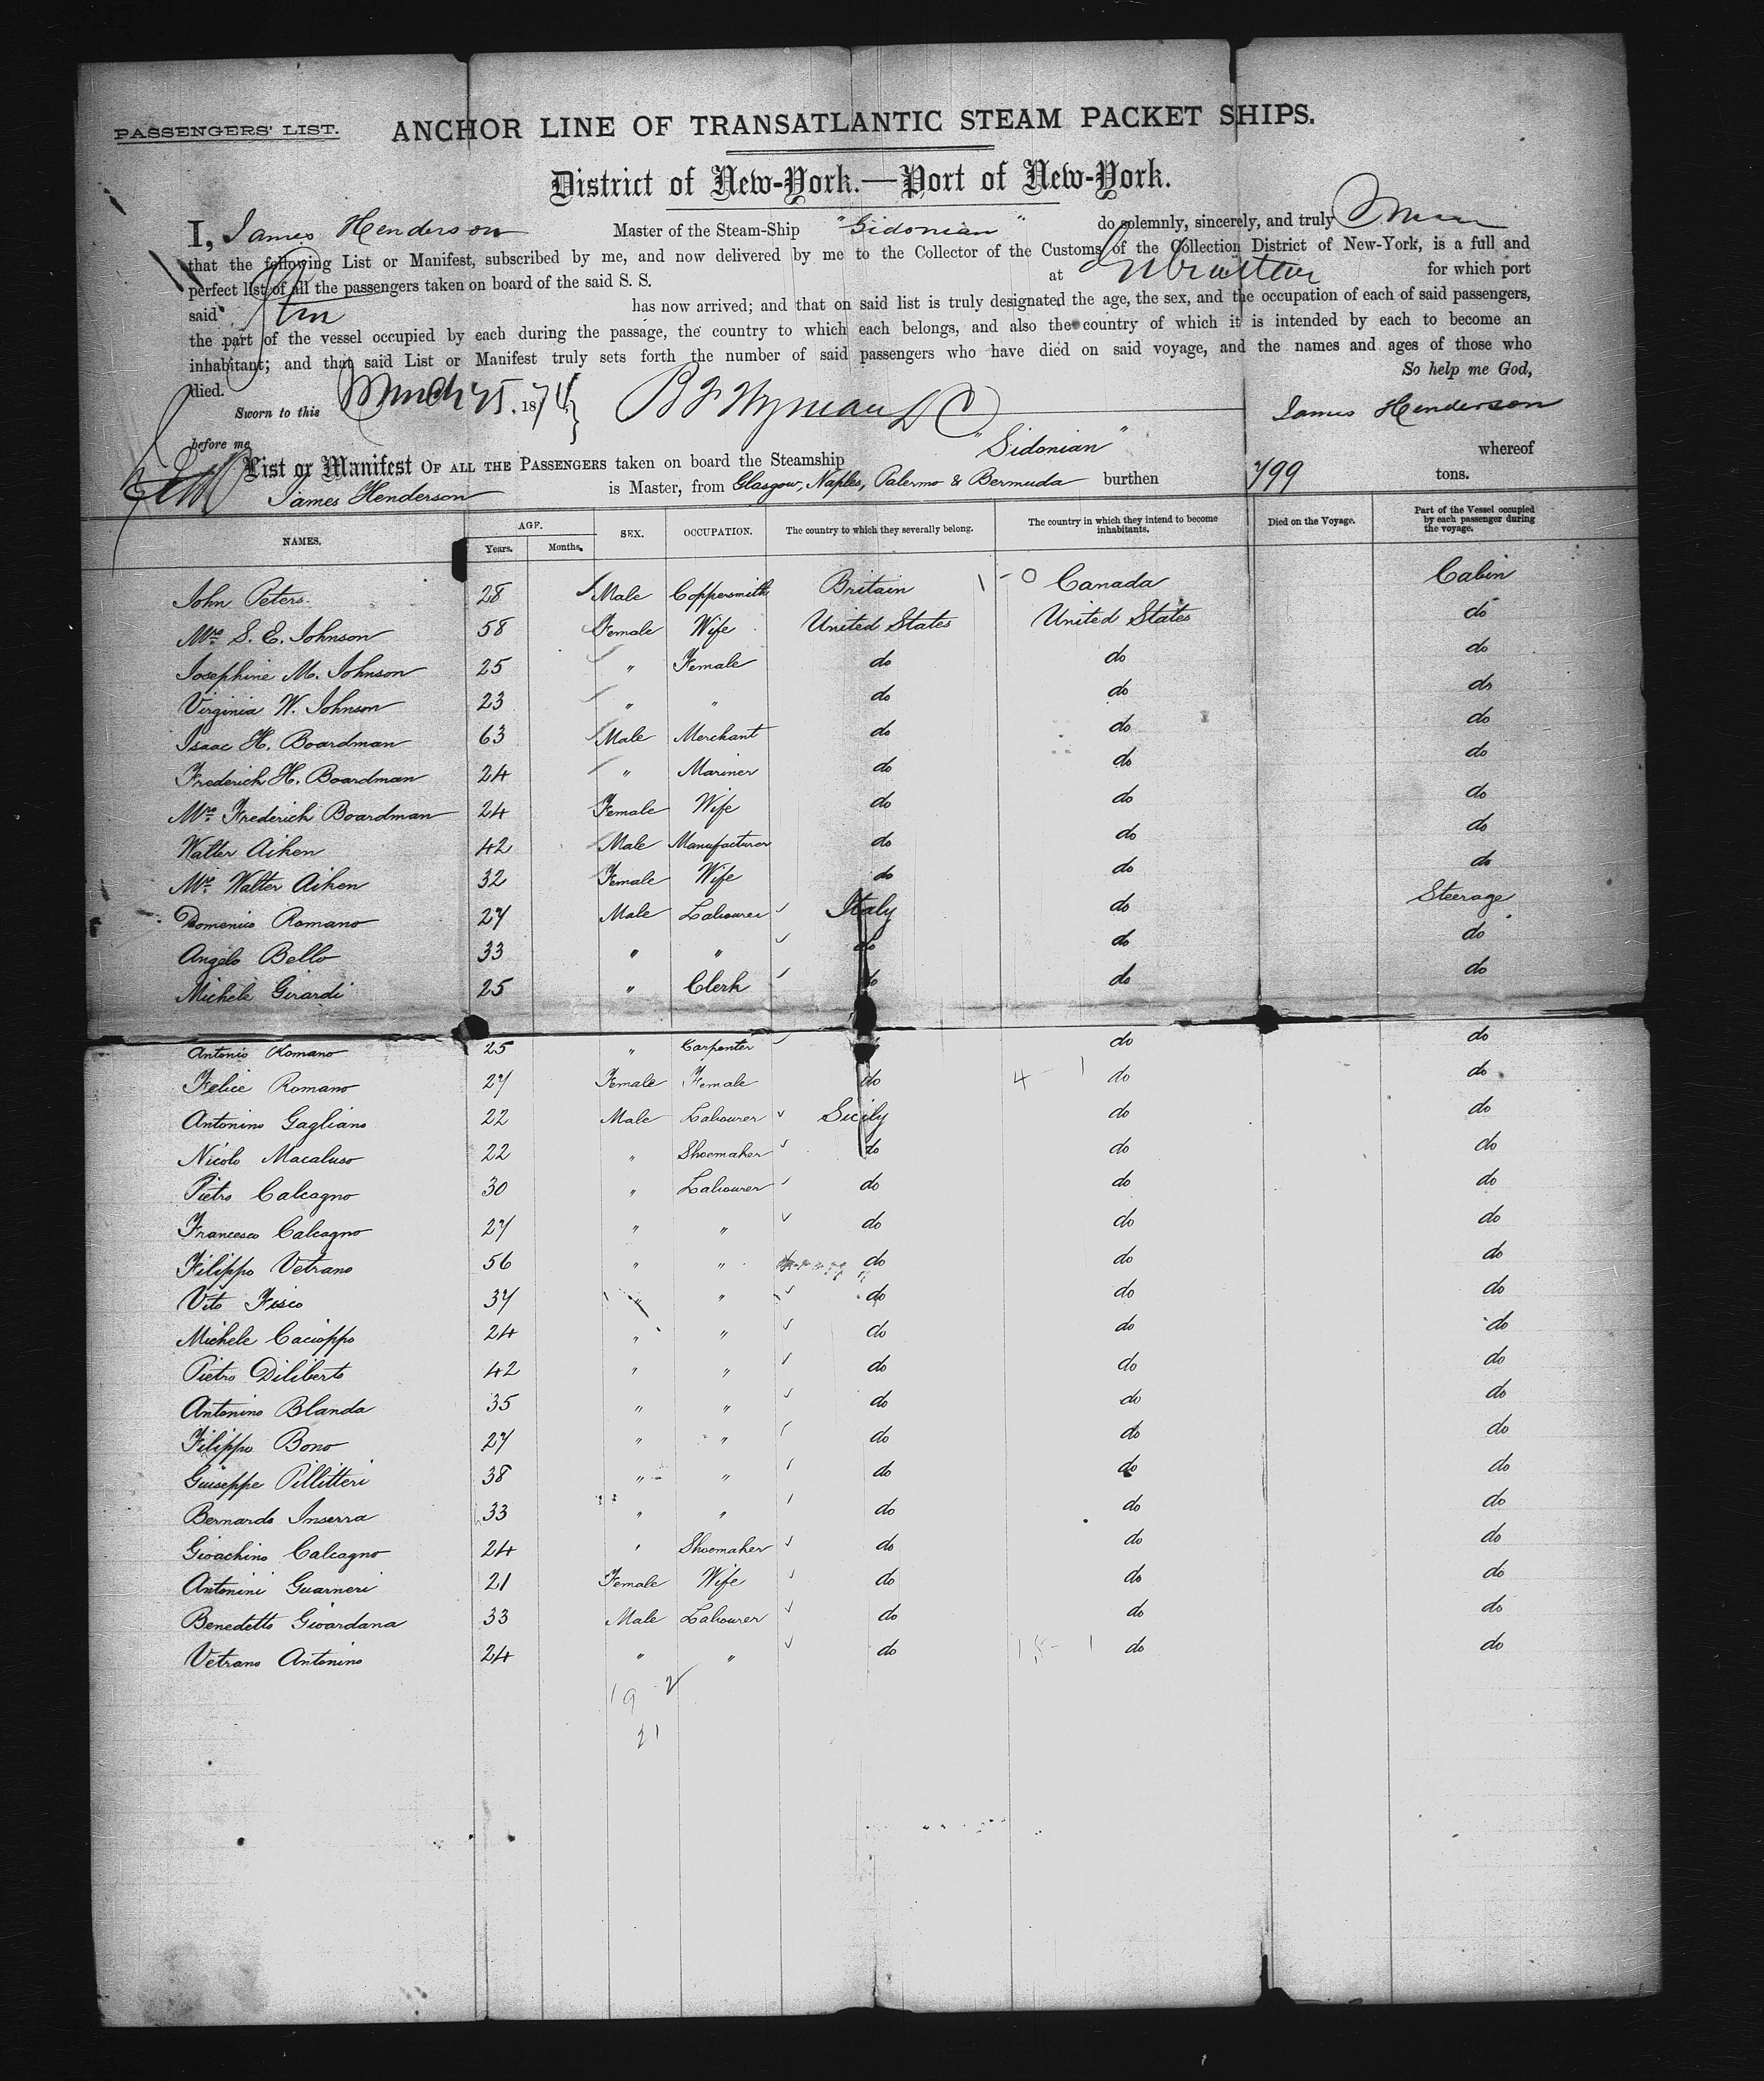 PASSENGERS' LIST. ANCHOR LINE OF TRANSATLANTIC STEAM PACKET SHIPS.
District of New-York.—Port of New-York.
I, James Henderson Master of the Steam-Ship "Sidonian" do solemnly, sincerely, and truly
that the following List or Manifest, subscribed by me, and now delivered by me to the Collector of the Customs of the Collection District of New-York, is a full and
perfect list of all the passengers taken on board of the said S. S. at for which port
said has now arrived; and that on said list is truly designated the age, the sex, and the occupation of each of said passengers,
the part of the vessel occupied by each during the passage, the country to which each belongs, and also the country of which it is intended by each to become an
inhabitant; and that said List or Manifest truly sets forth the number of said passengers who have died on said voyage, and the names and ages of those who
died. So help me God,
Sworn to this March 1874 James Henderson
before me
List or Manifest OF ALL THE PASSENGERS taken on board the Steamship "Sidonian" whereof
James Henderson is Master, from Glasgow, Naples, Palermo & Bermuda burthen 799 tons.
NAMES. AGE. Years. Months. SEX. OCCUPATION. The country to which they severally belong. The country in which they intend to become inhabitants. Died on the Voyage. Part of the Vessel occupied by each passenger during the voyage.
John Peters 28 Male Coppersmith Britain 1 - 0 Canada Cabin
Mrs. S. E. Johnson 58 Female Wife United States United States do
Josephine M. Johnson 25 " Female do do do
Virginia W. Johnson 23 " " do do do
Isaac H. Boardman 63 Male Merchant do do do
Frederich H. Boardman 24 " Mariner do do do
Mrs. Frederich Boardman 24 Female Wife do do do
Walter Aiken 42 Male Manufacturer do do do
Mrs. Walter Aiken 32 Female Wife do do do
Domenico Romano 27 Male Labourer Italy do Steerage
Angelo Bello 33 " " do do do
Michele Girardi 25 " Clerk do do do
Antonio Romano 25 " Carpenter do do do
Felice Romano 27 Female Female do 4 - 1 do do
Antonino Gagliano 22 Male Labourer Sicily do do
Nicolo Macaluso 22 " Shoemaker do do do
Pietro Calcagno 30 " Labourer do do do
Francesco Calcagno 27 " " do do do
Filippo Vetrano 56 " " do do do
Vito Fisco 37 " " do do do
Michele Cacioppo 24 " " do do do
Pietro Diliberto 42 " " do do do
Antonino Blanda 35 " " do do do
Filippo Bono 27 " " do do do
Giuseppe Pillitteri 38 " " do do do
Bernardo Inserra 33 " " do do do
Gioachino Calcagno 24 " Shoemaker do do do
Antonini Guarneri 21 Female Wife do do do
Benedetto Gioardana 33 Male Labourer do do do
Vetrano Antonino 24 " " do 15 - 1 do do
19 2
21